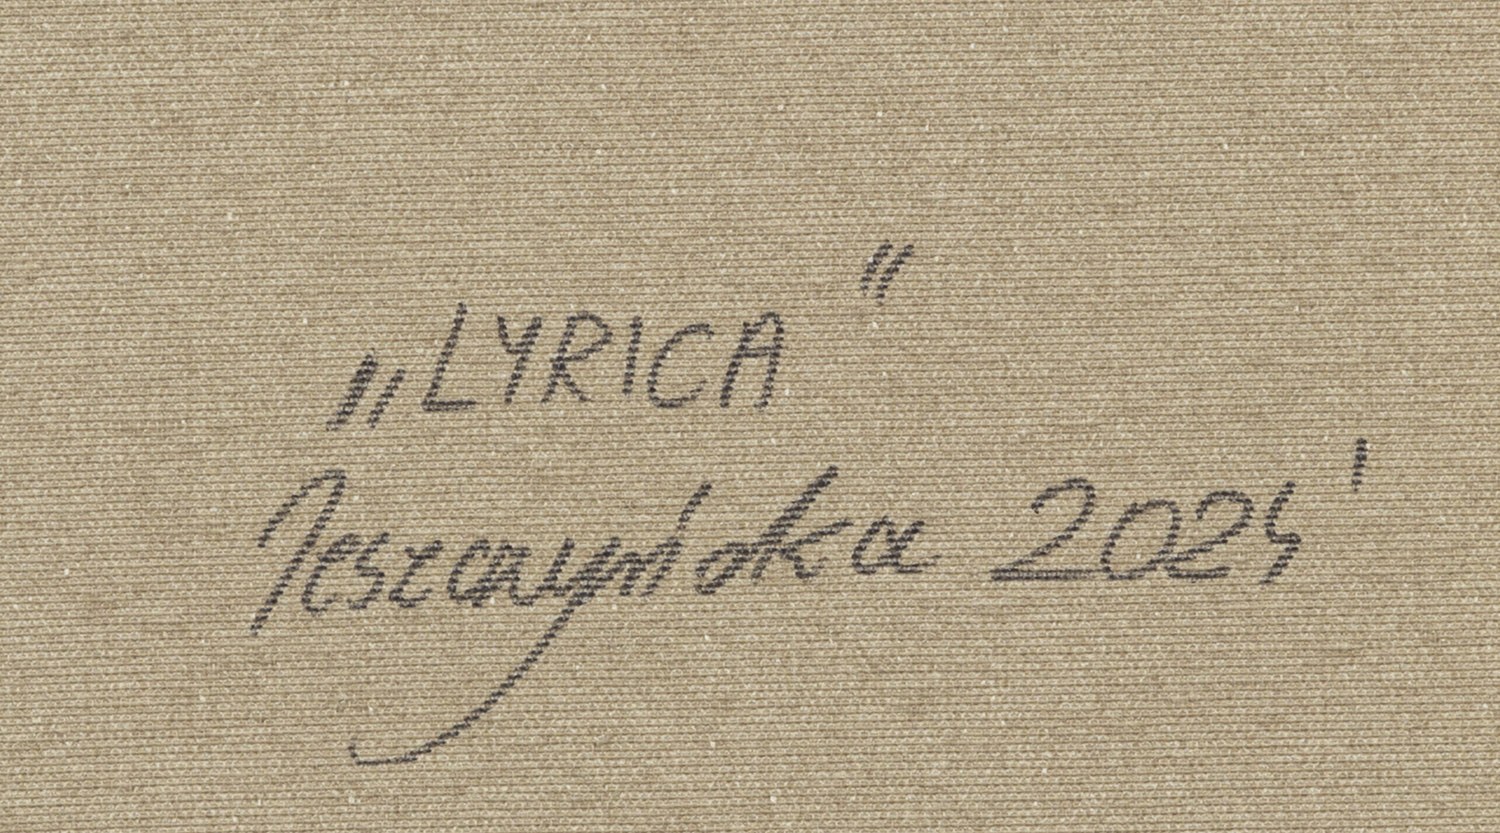 „LYRICA"
Jeszczyńska 2024'